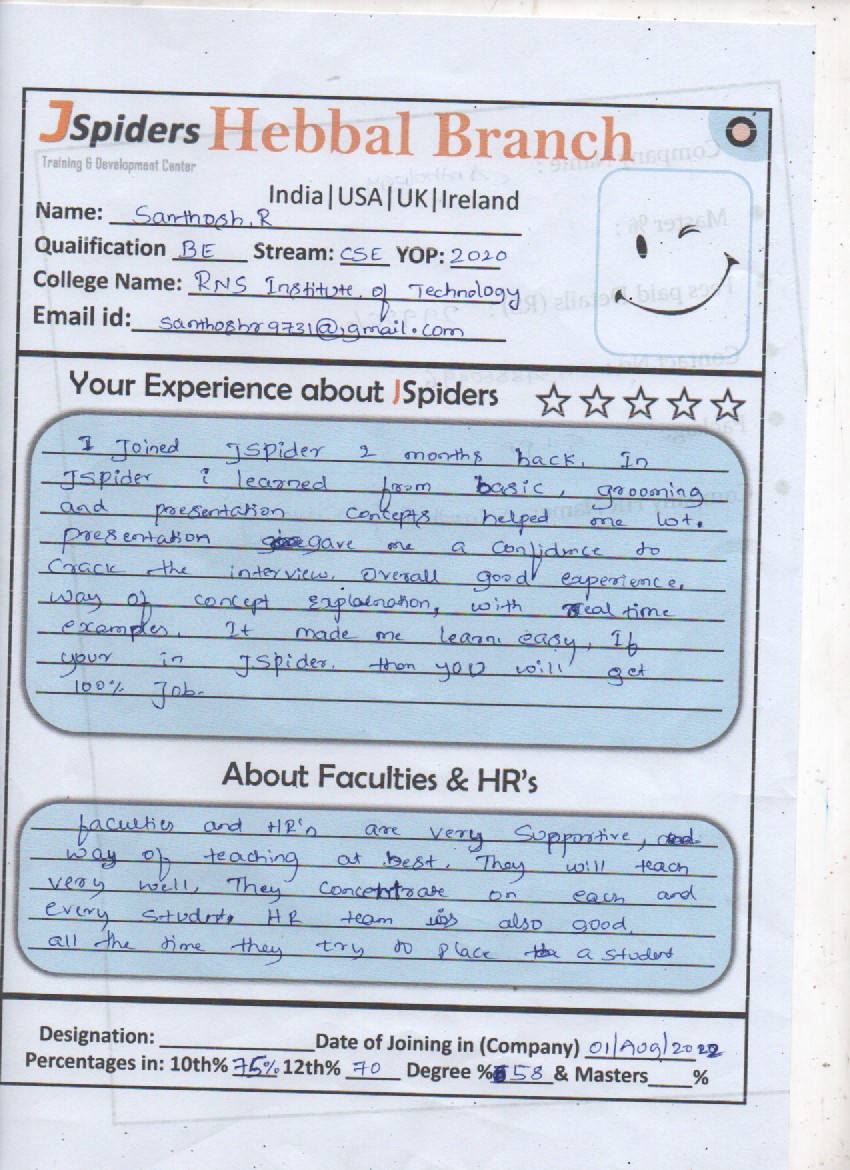 JSpiders Hebbal Branch
Training & Development Center
India|USA|UK|Ireland
Name: Santhosh.R
Qualification BE Stream: CSE YOP: 2020
College Name: RNS Institute of Technology
Email id: santhoshr9731@gmail.com
Your Experience about JSpiders
I Joined JSpider 2 months back. In
JSpider i learned from basic, grooming
and presentation concepts helped me lot.
presentation gave me a confidence to
crack the interview. Overall good experience.
way of concept explaination, with real time
examples. It made me learn easy, If
your in JSpider. then you will get
100% Job.
About Faculties & HR's
faculties and HR's are very supportive,
way of teaching at best. They will teach
very well. They concentrate on each and
every student. HR team is also good.
all the time they try to place a student
Designation: Date of Joining in (Company) 01/Aug/2022
Percentages in: 10th% 75% 12th% 70 Degree % 58 & Masters %